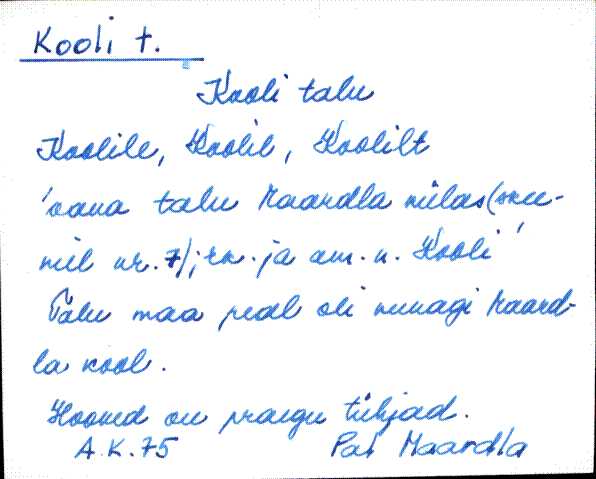 Kooli t.
Kooli talu
Koolile, Koolil, Koolilt
'vana talu Maardla külas (skee-
mil nr. 7); rk. ja am. n. Kooli'
Talu maa peal oli kunagi Maard-
la kool.
Hooned on praegu tühjad.
A.K. 75 Pal Maardla